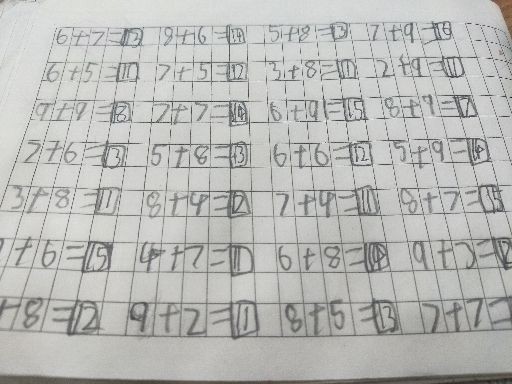 6+7=13 8+6=14 5+8=13 7+9=16
6+5=11 7+5=12 3+8=11 2+9=11
9+9=18 7+7=14 6+9=15 8+9=17
7+6=13 5+8=13 6+6=12 5+9=14
3+8=11 8+4=12 7+4=11 8+7=15
+6=15 4+7=11 6+8=14 9+3=12
+8=12 9+2=11 8+5=13 7+7=